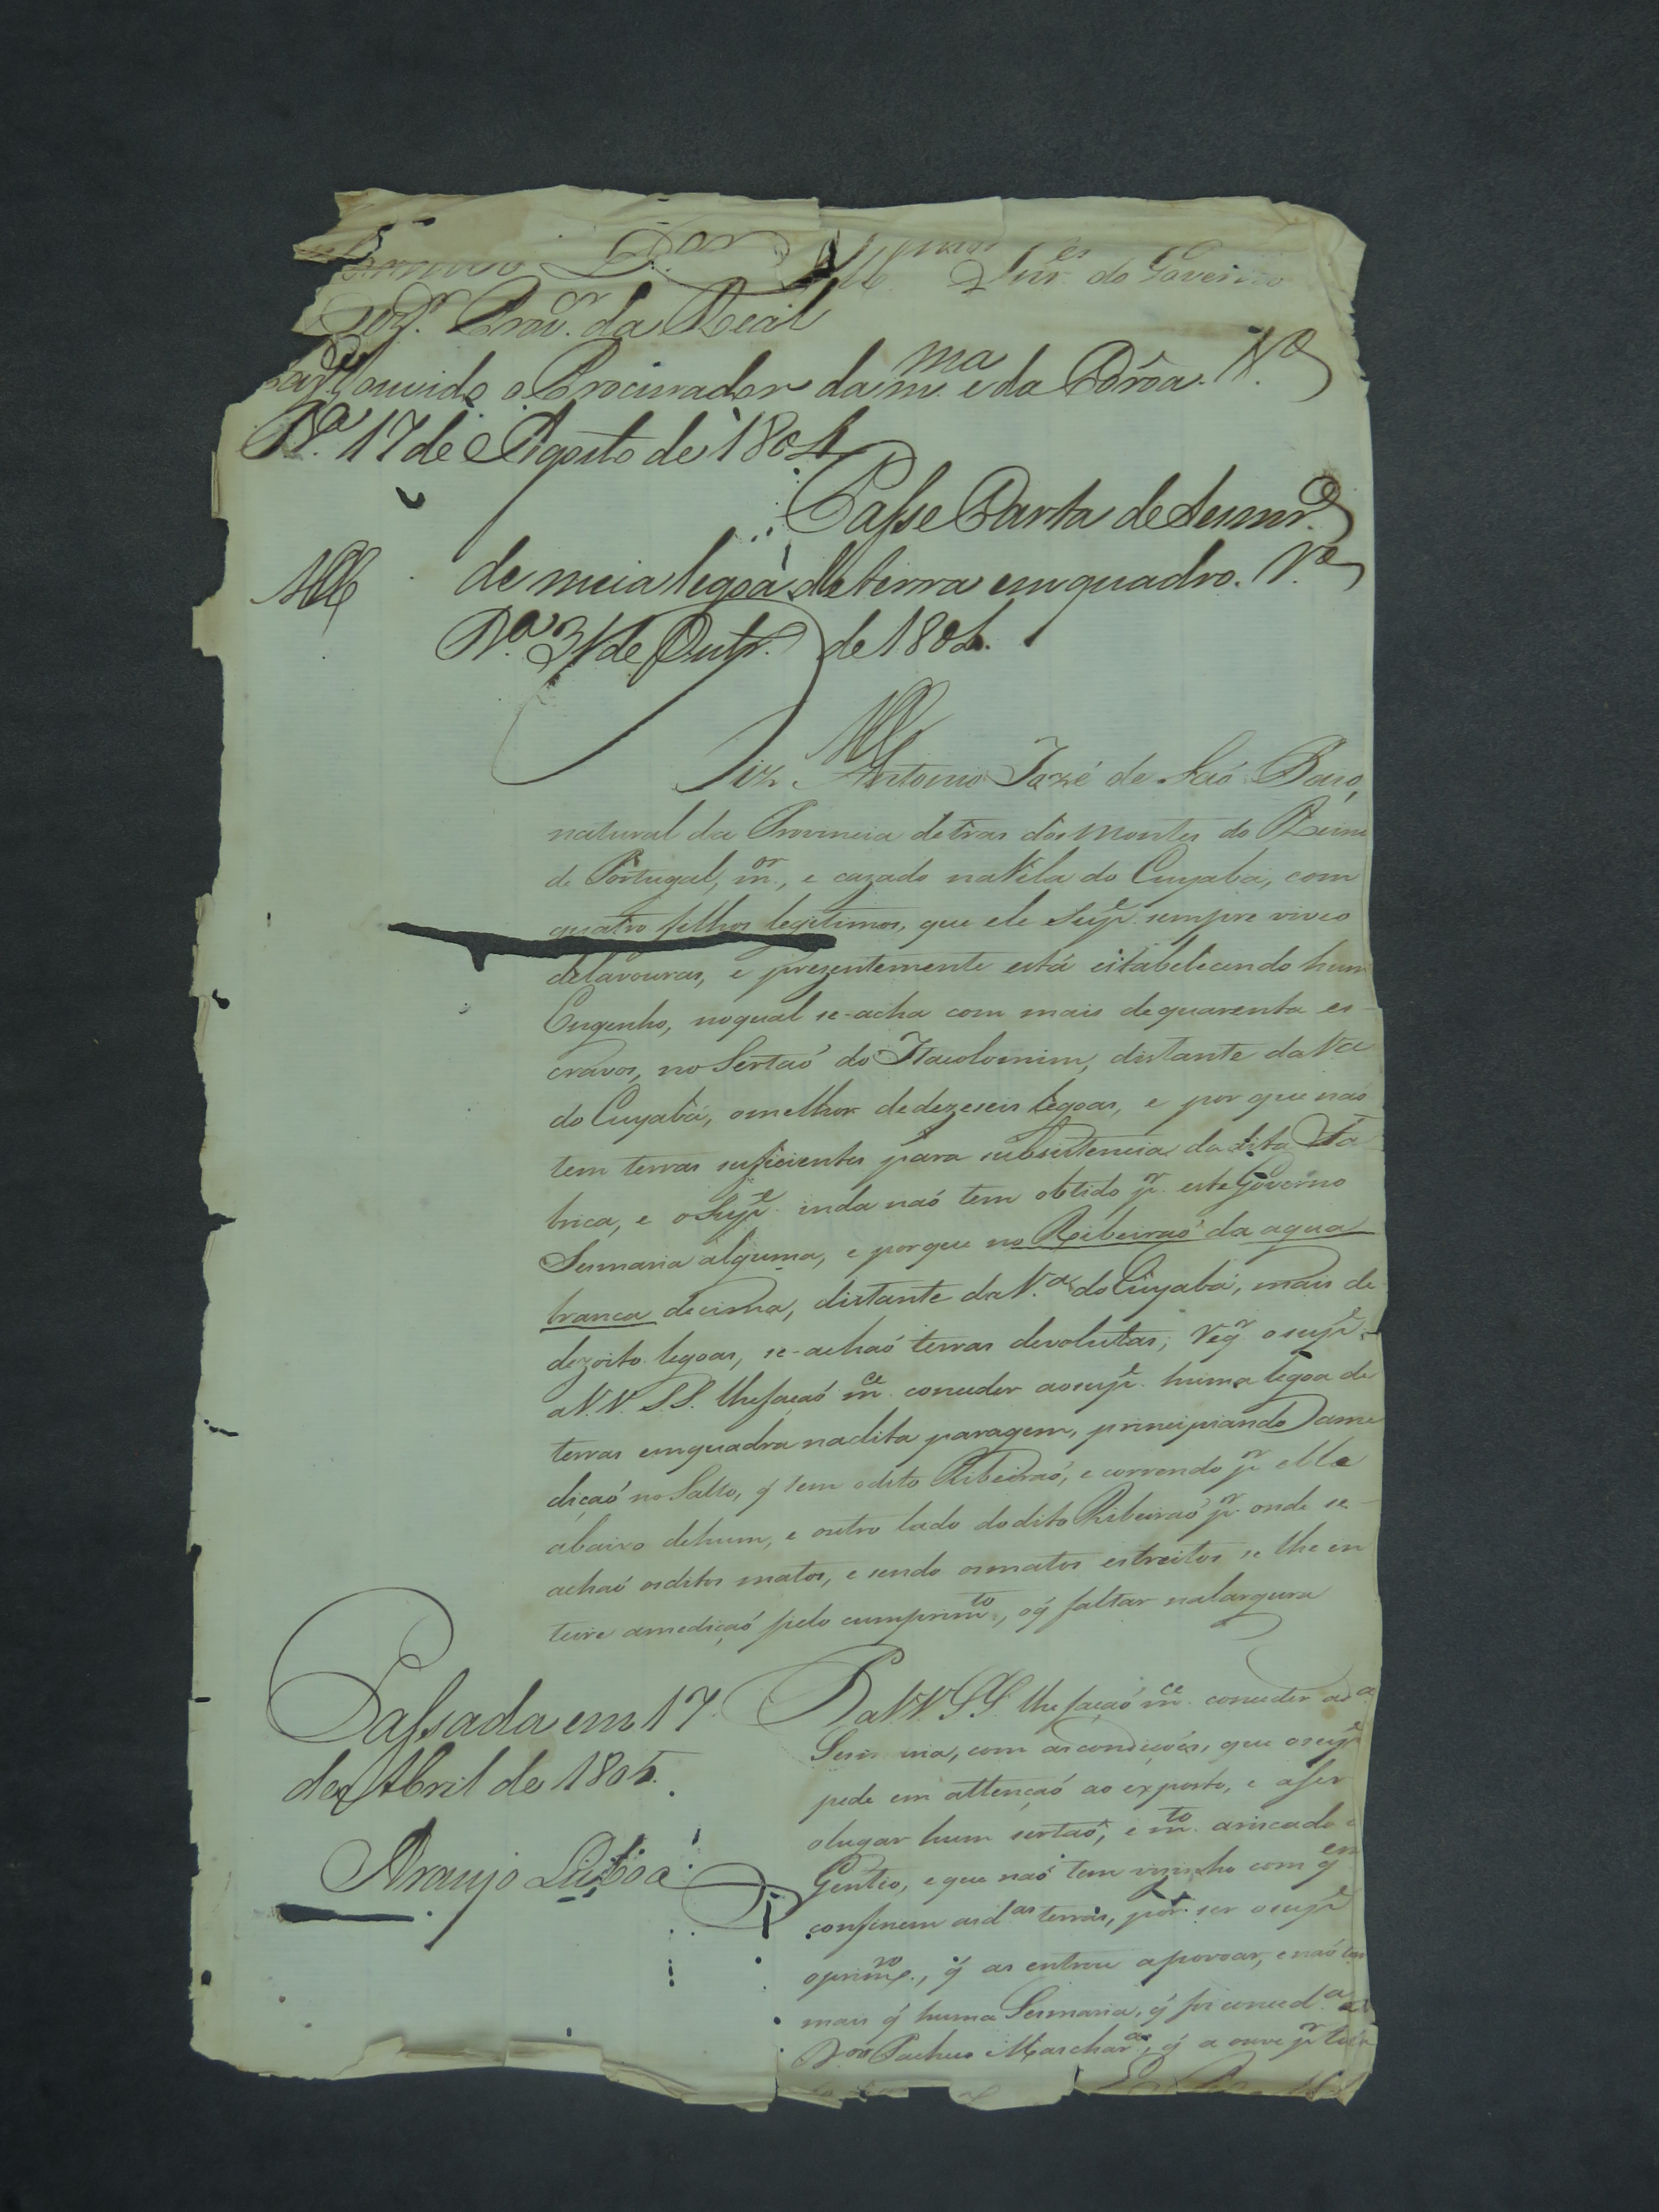 Ill.mos Snr.es do Governo
Prov.or da Real
ouvido o Procurador da m.ma e da Corôa. V.a
B.a 17 de Agosto de 1804
Passe Carta de Sesmr.a
de meia legoa de terra em quadro. V.a
B.a 31 de Outr.o de 1804.
Diz Antonio Jozé de
natural da Provincia detras dos Montes do Reino
de Portugal, m.or, e cazado na Vila do Cuyabá, com
quatro filhos legitimos, que ele Sup.e sempre viveo
delavouras, e prezentemente está estabelecendo hum
Engenho, noqual se-acha com mais dequarenta es-
cravos, no Sertaó do Itacolomim, distante da V.a
do Cuyabá, omelhor dedezeseis legoas, e por que naó
tem terras suficientes para subsistencia da dita Fa-
brica, e o Sup.e inda naó tem obtido p.r este Governo
Sesmaria alguma, e porque no Ribeiraó da agua
branca decima, distante da V.a do Cuyabá, mais de
dezoito legoas, se-achaó terras devolutas; o sup.e
a V.V. S.S. lhefaçaó m.ce conceder aosup.e huma legoa de
terras emquadra nadita paragem, principiando ame
diçaó no Salto, q̃ tem odito Ribeiraó, e correndo p.r elle
abaixo dehum, e outro lado dodito Ribeiraó p.r onde se-
achaó osditos matos, e sendo osmatos estreitos se lhe en
teire amediçaó pelo cumprim.to, oq̃ faltar nalargura
P a VV SS. lhe façaó m.ce conceder ad.a
Sesmaria, com ascondiçoés, que osup.e
pede em attençaó ao exposto, e aser
olugar hum sertaó, e m.to ariscado
Gentio, eque naó tem vizinho com q.em
confinem asd.as terras, por ser osup.e
oprimr.o, q̃ as entrou apovoar, e naó
mais q̃ huma Sesmaria, q̃ foi conced.a
Pacheco q̃ a ouve p.r
Passada em 17
de Abril de 1805.
Araujo Lisboa